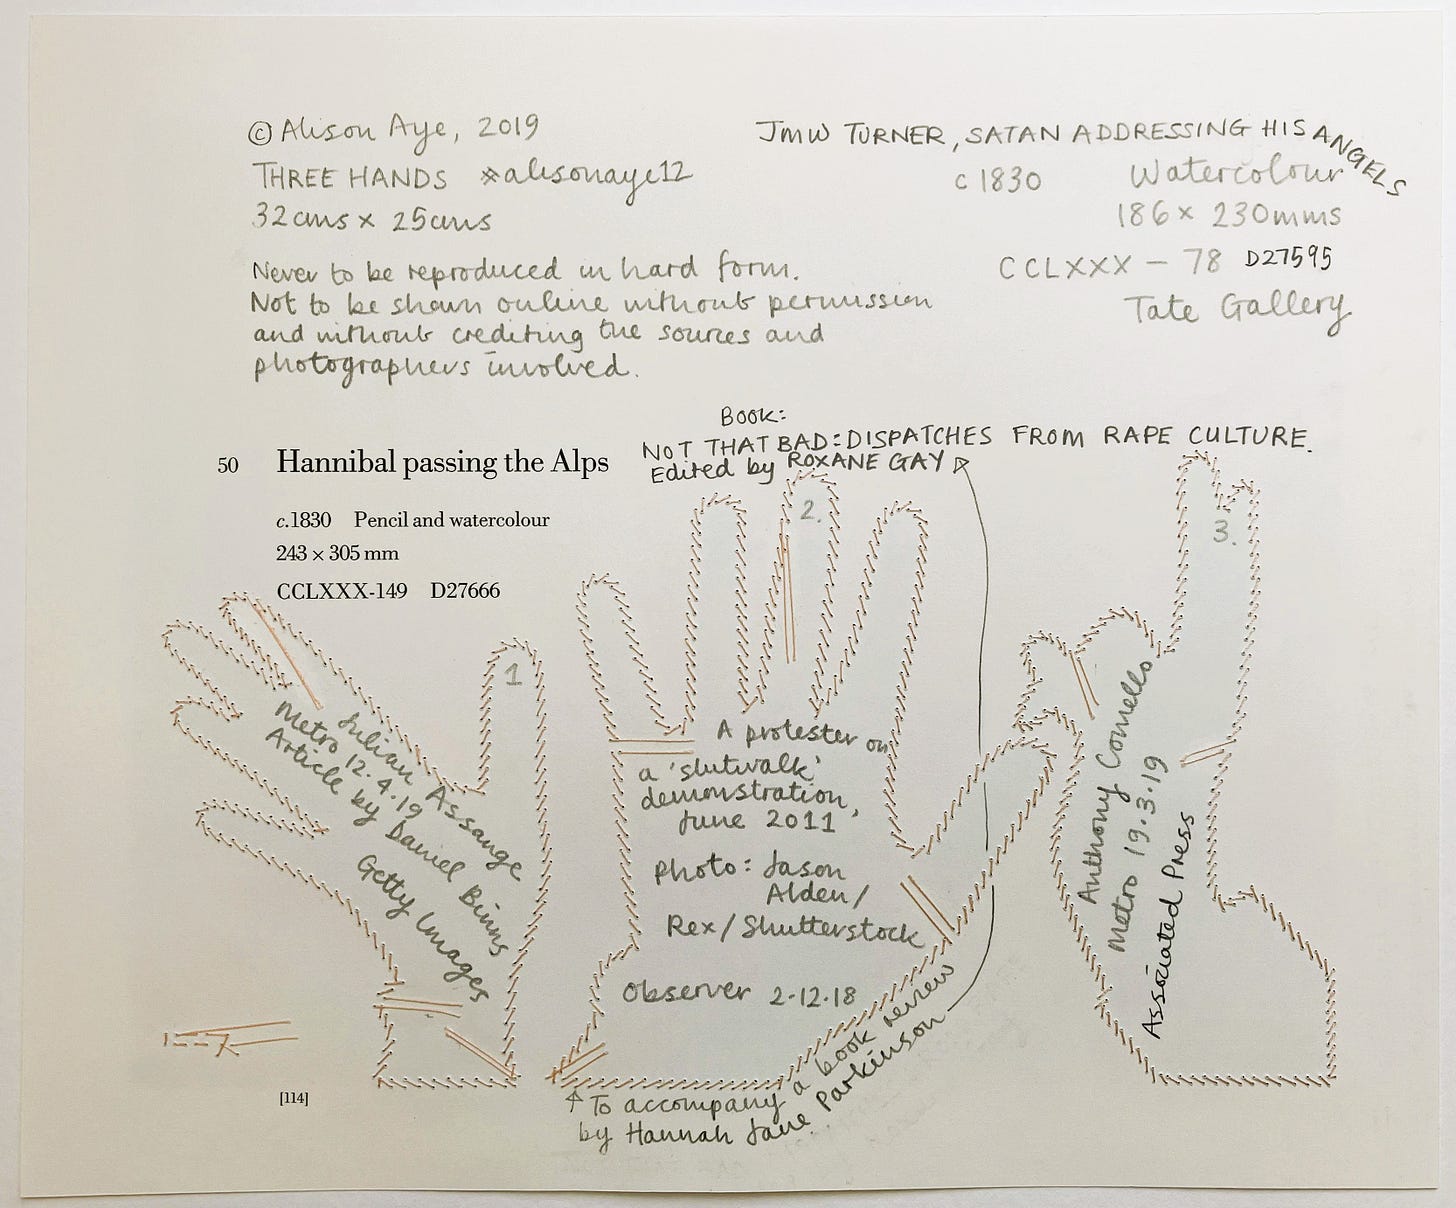 © Alison Aye, 2019
THREE HANDS *alisonaye12
32cms x 25cms
Never to be reproduced in hard form.
Not to be shown online without permission
and without crediting the sources and
photographers involved.
JMW TURNER, SATAN ADDRESSING HIS ANGELS
c 1830 Watercolour
186 x 230mms
CCLXXX - 78 D27595
Tate Gallery
Book:
NOT THAT BAD: DISPATCHES FROM RAPE CULTURE.
Edited by ROXANE GAY
50 Hannibal passing the Alps
c.1830 Pencil and watercolour
243 × 305 mm
CCLXXX-149 D27666
1
Julian Assange
Metro 12.4.19
Article by Daniel Binns
Getty Images
2.
A protester on
a 'slutwalk'
demonstration,
June 2011
Photo: Jason
Alden/
Rex/Shutterstock
Observer 2.12.18
To accompany a book review
by Hannah Jane Parkinson
3.
Anthony Comello
Metro 19.3.19
Associated Press
[114]